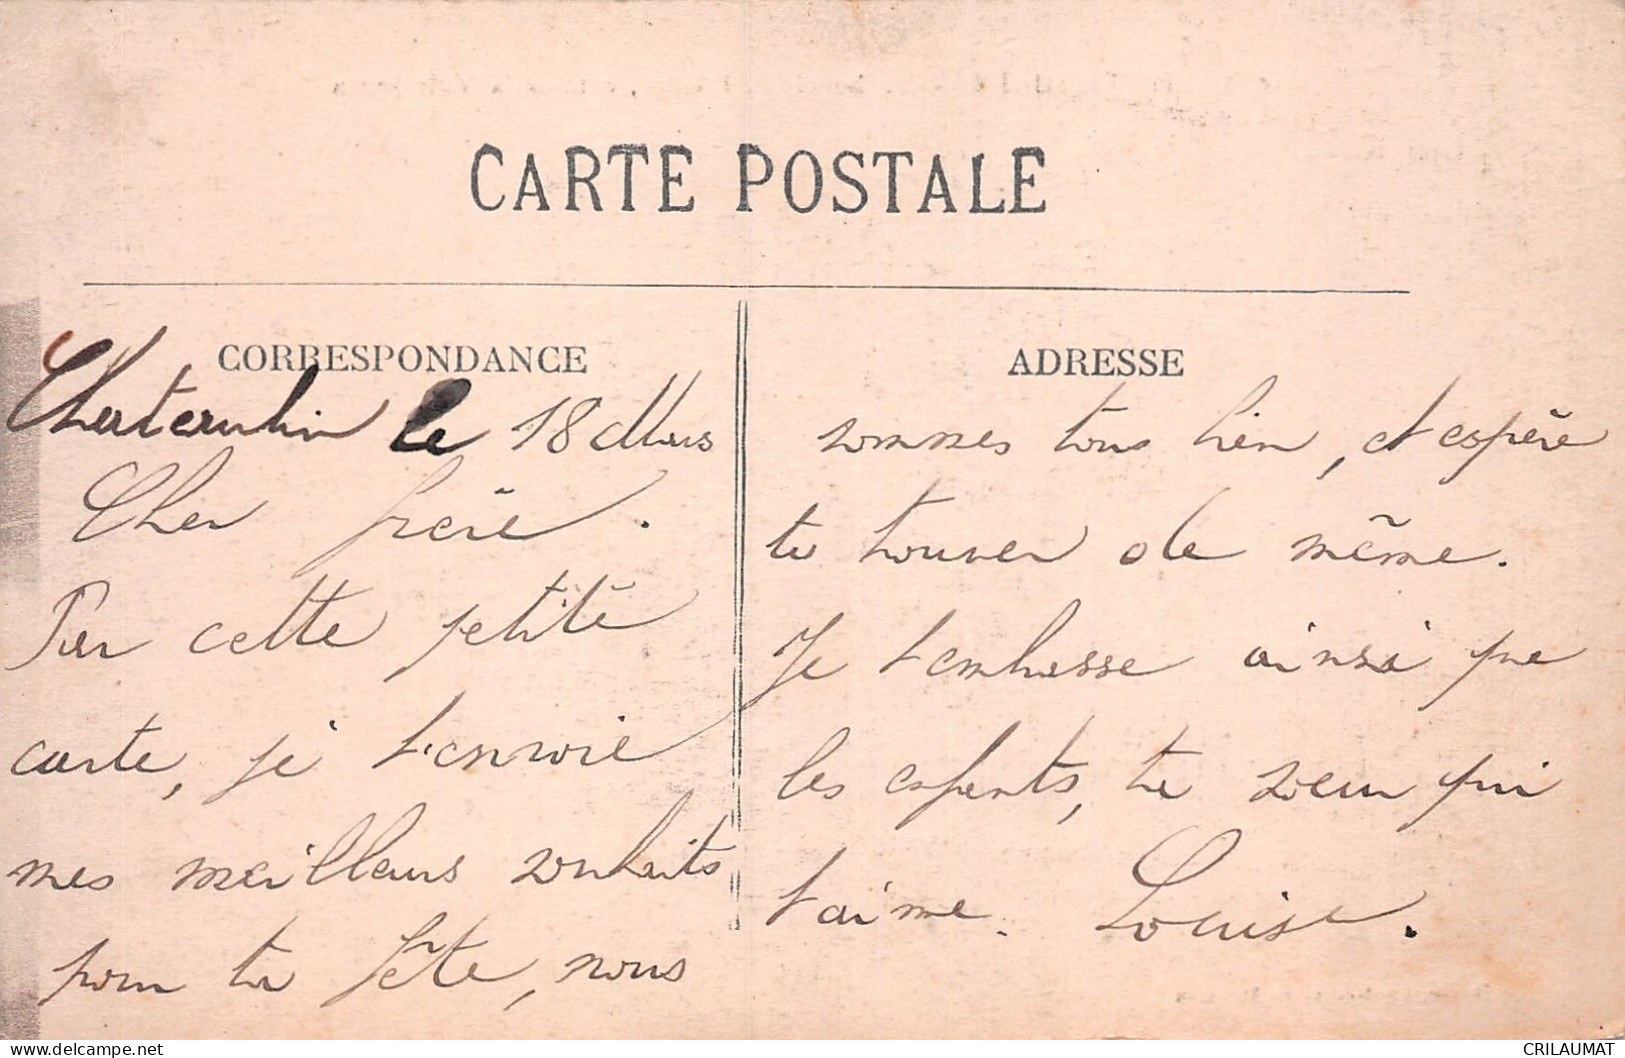 CARTE POSTALE
CORRESPONDANCE
ADRESSE
le 18 Mars
Cher frère.
Par cette petite
carte, je t'envoie
mes meilleurs souhaits
pour ta fête, nous
sommes tous bien, et espère
te trouver de même.
Je t'embrasse ainsi que
les enfants, ta soeur qui
t'aime. Louise.
CRILAUMAT